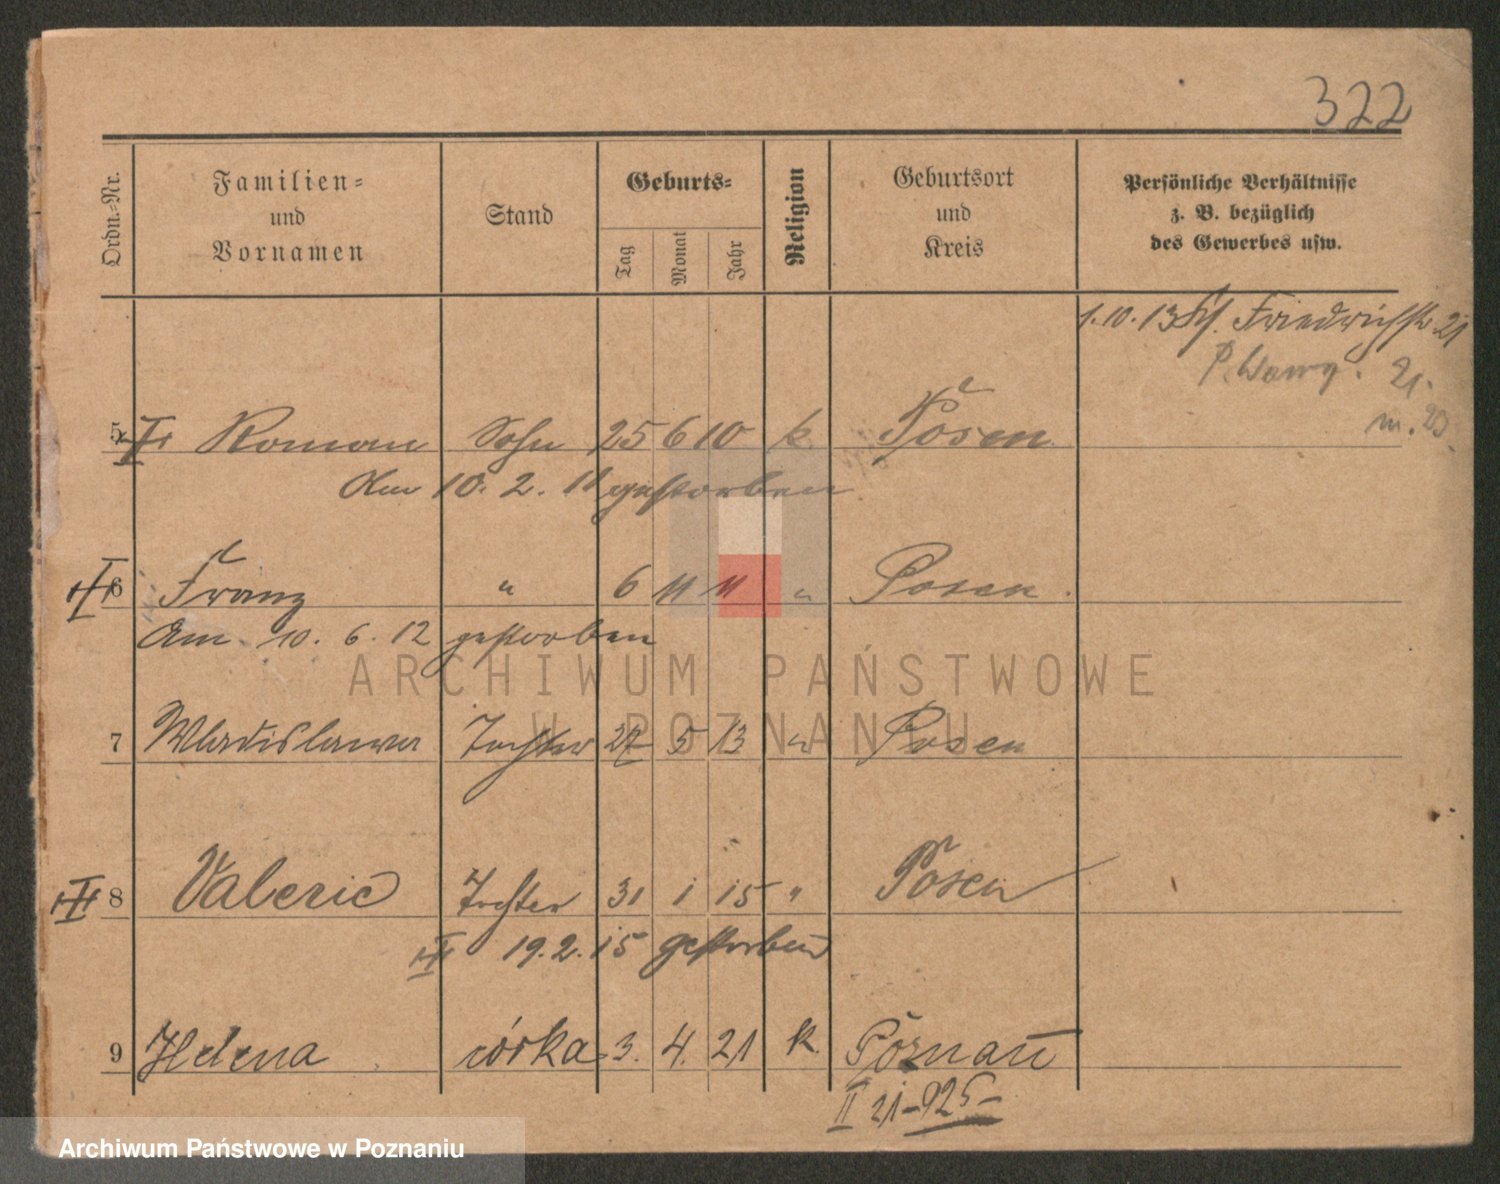 322
Ordn.-Nr.
Familien-
und
Vornamen
Stand
Geburts-
Tag
Monat
Jahr
Religion
Geburtsort
und
Kreis
Persönliche Verhältnisse
z. B. bezüglich
des Gewerbes usw.
1.10.13 Friedrichstr. 21
21.
5 Roman Sohn 25 6 10 k. Posen
Am 10. 2. 11 gestorben
6 Franz " 6 11 11 " Posen.
Am 10. 6. 12 gestorben
ARCHIWUM PAŃSTWOWE
W POZNANIU
7 Wladislawa Tochter 27 5 13 " Posen
8 Valerie Tochter 31 1 15 " Posen
19.2.15 gestorben
9 Helena córka 3. 4. 21 k. Poznań
II 21-925-
Archiwum Państwowe w Poznaniu